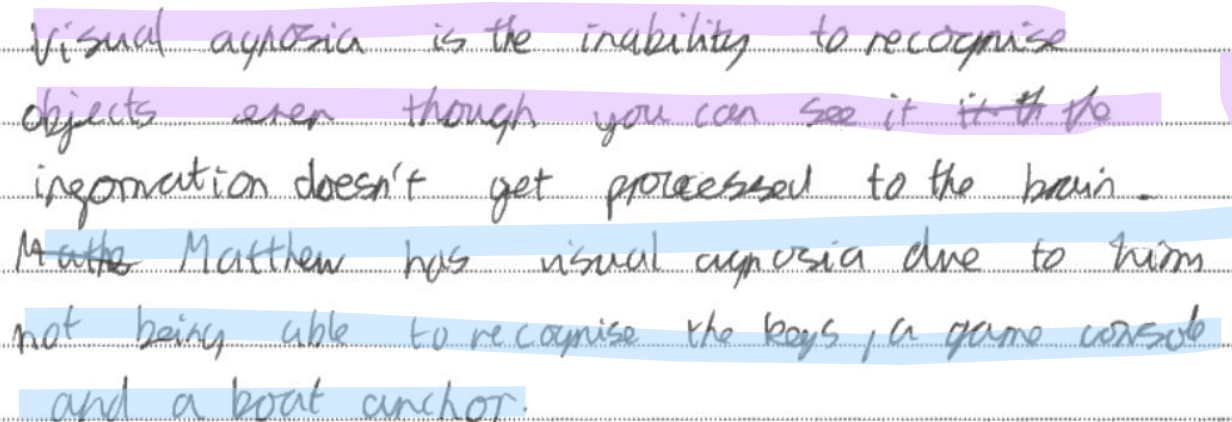 Visual agnosia is the inability to recognise
objects even though you can see it it th the
ingomation doesn't get processed to the brain.
Mathe Matthew has visual agnosia due to him
not being able to recognise the keys, a game console
and a boat anchor.